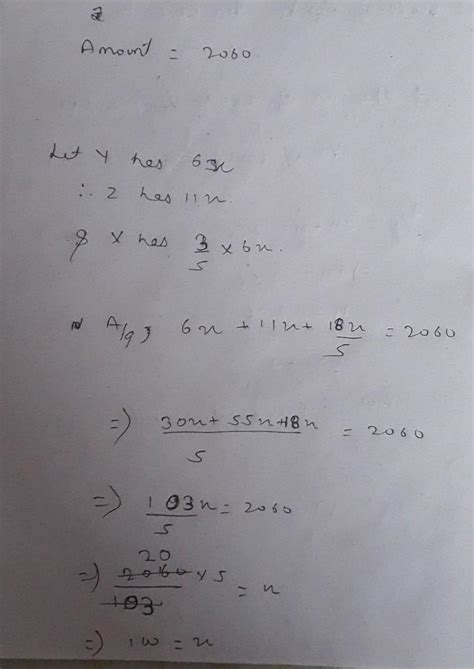 2
Amount = 2060
Let Y has 6x
∴ Z has 11x.
& X has 3/5 × 6x.
A/q, 6x + 11x + 18x/5 = 2060
=) 30x + 55x + 18x / 5 = 2060
=) 103x/5 = 2060
20
=) 2060 × 5 / 103 = x
=) 100 = x